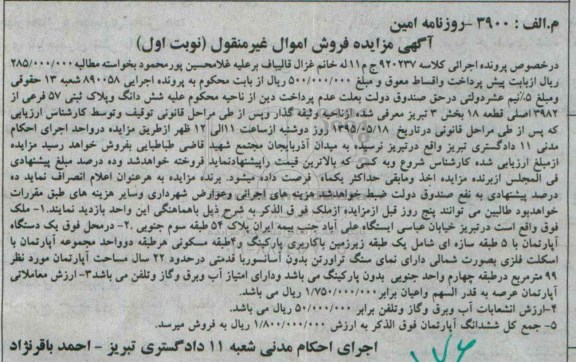 م.الف : ۳۹۰۰ -روزنامه امین
آگهی مزایده فروش اموال غیرمنقول (نوبت اول)
درخصوص پرونده اجرائی کلاسه ۹۲۰۲۳۷ج م۱۱ له خانم غزال قالیباف برعلیه غلامحسین پورمحمود بخواسته مطالبه ۲۸۵/۰۰۰/۰۰۰
ریال ازبابت پیش پرداخت واقساط معوق و مبلغ ۵۰۰/۰۰۰/۰۰۰ ریال از بابت محکوم به پرونده اجرایی ۸۹۰۰۵۸ شعبه ۱۳ حقوقی
ومبلغ ۵٪نیم عشردولتی درحق صندوق دولت بعلت عدم پرداخت دین از ناحیه محکوم علیه شش دانگ وپلاک ثبتی ۵۷ فرعی از
۳۹۸۲ اصلی قطعه ۱۸ بخش ۳ تبریز معرفی شده ازناحیه وثیقه گذار وپس از طی مراحل قانونی توقیف وتوسط کارشناس ارزیابی
که پس از طی مراحل قانونی درتاریخ ۱۳۹۵/۰۵/۱۸ روز دوشنبه ازساعت ۱۱الی ۱۲ ظهر ازطریق مزایده درواحد اجرای احکام
مدنی ۱۱ دادگستری تبریز واقع درتبریز نرسیده به میدان آذربایجان مجتمع شهید قاضی طباطبایی بفروش خواهد رسید مزایده
ازمبلغ ارزیابی شده کارشناس شروع وبه کسی که بالاترین قیمت راپیشنهادنماید فروخته خواهدشد وده درصد مبلغ پیشنهادی
فی المجلس ازبرنده مزایده اخذ ومابقی حداکثر یکماه فرصت داده میشود. برنده مزایده به هرعنوان اعلام انصراف نماید ده
درصد پیشنهادی به نفع صندوق دولت ضبط خواهدشد. هزینه های اجرائی وعوارض شهرداری وسایر هزینه های طبق مقررات
خواهدبود طالبین می توانند پنج روز قبل ازمزایده ازملک فو ق الذکر به شرح ذیل باهماهنگی این واحد بازدید نمایند.۱- ملک
فوق واقع است درتبریز خیابان عباسی ایستگاه علی آباد جنب بیمه ایران پلاک ۵۴ طبقه سوم جنوبی .۲- درمحل فوق یک دستگاه
آپارتمان با ۵ طبقه سازه ای شامل یک طبقه زیرزمین باکاربری پارکینگ و۴طبقه مسکونی هرطبقه دوواحد مجموعه آپارتمان با
اسکلت فلزی بصورت شمالی دارای نمای سنگ تراورتن بدون آسانسوربا قدمتی درحدود ۲۲ سال مساحت آپارتمان مورد نظر
۹۹ مترمربع درطبقه چهارم واحد جنوبی بدون پارکینگ می باشد ودارای امتیاز آب وبرق وگاز وتلفن می باشد ۳- ارزش معاملاتی
آپارتمان عرصه به قدر السهم واعیان برابر ۱/۷۵۰/۰۰۰/۰۰۰ ریال می باشد.
۴-ارزش انشعابات آب وبرق وگاز وتلفن برابر ۵۰/۰۰۰/۰۰۰ ریال می باشد.
۵- جمع کل ششدانگ آپارتمان فوق الذکر به ارزش ۱/۸۰۰/۰۰۰/۰۰۰ ریال به فروش میرسد.
اجرای احکام مدنی شعبه ۱۱ دادگستری تبریز - احمد باقرنژاد